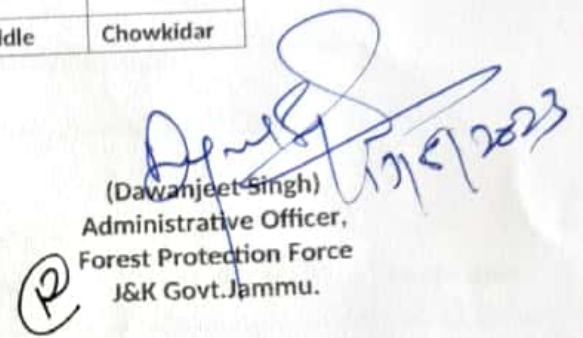 ddle Chowkidar
(Dawanjeet Singh)
Administrative Officer,
Forest Protection Force
J&K Govt.Jammu.